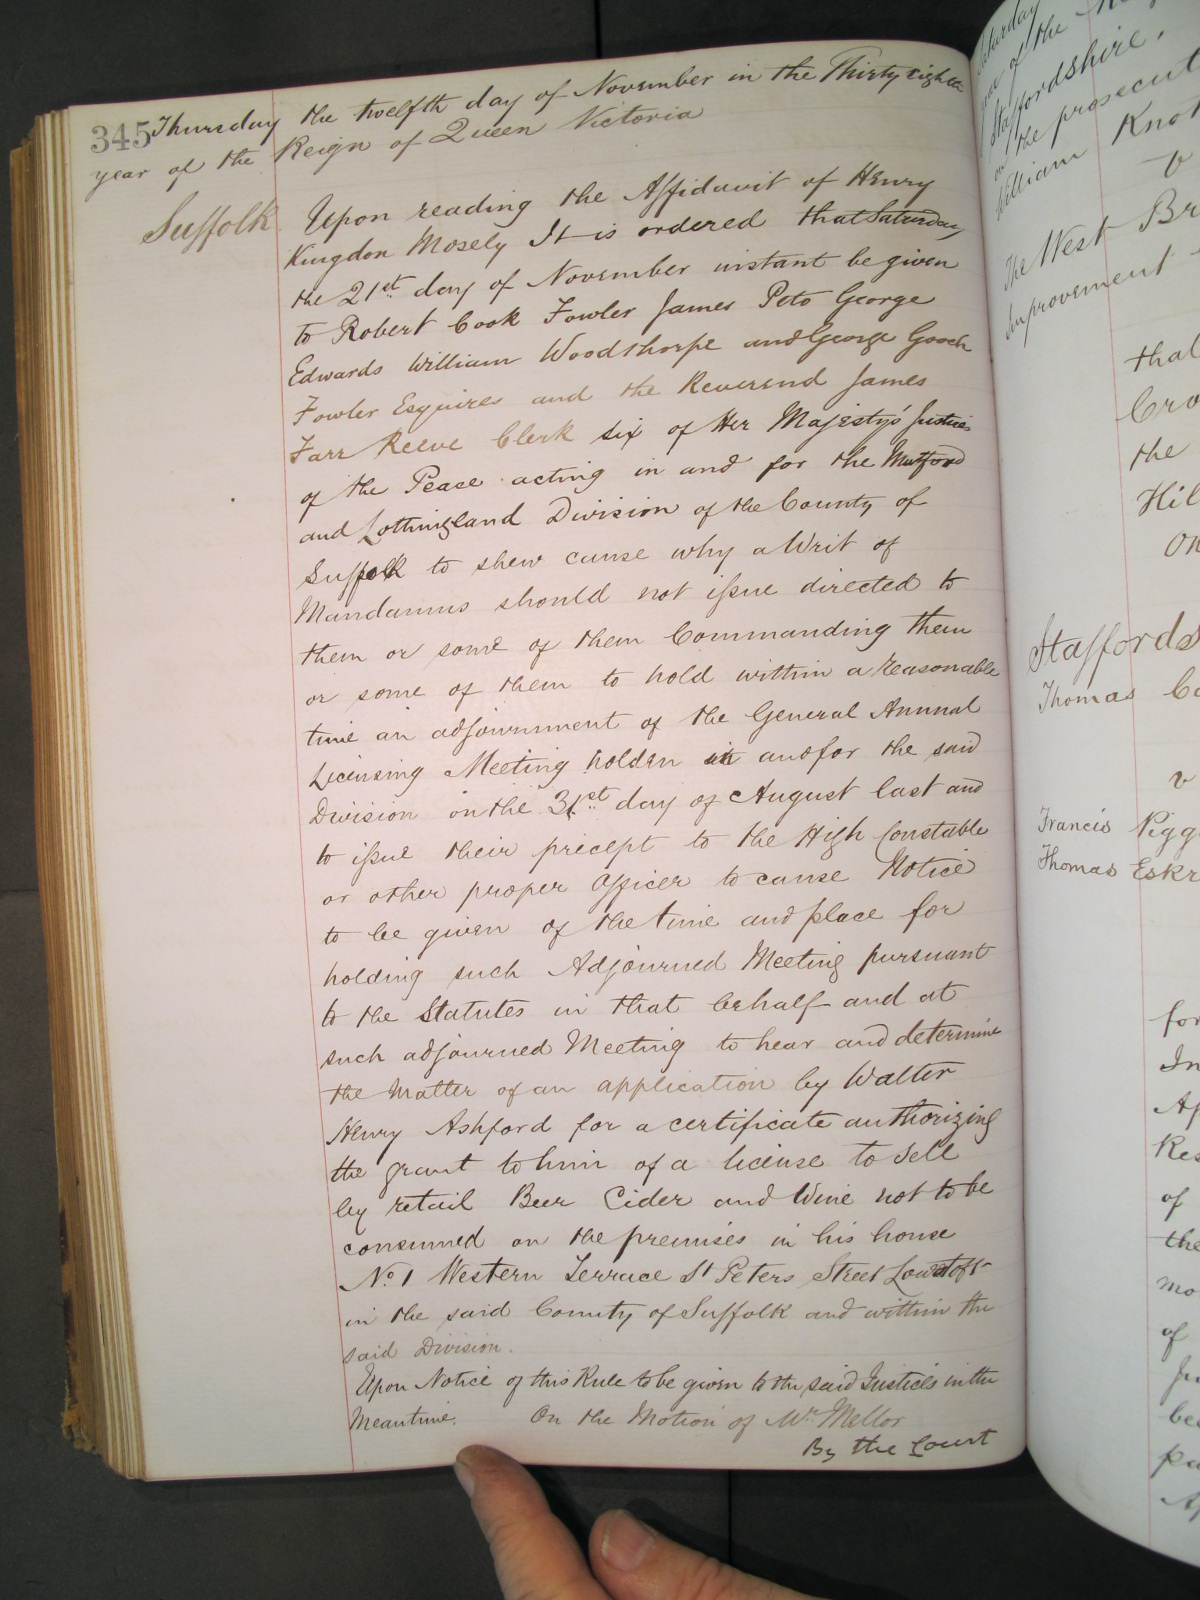 345 Thursday the twelfth day of November in the Thirty eighth
year of the Reign of Queen Victoria
Suffolk
Upon reading the Affidavit of Henry
Kingdon Mosely It is ordered that Saturday
the 21st day of November instant be given
to Robert Cook Fowler James Peto George
Edwards William Woodthorpe and George Gooch
Fowler Esquires and the Reverend James
Farr Reeve Clerk six of Her Majesty's Justices
of the Peace acting in and for the Mutford
and Lothingland Division of the County of
Suffolk to shew cause why a Writ of
Mandamus should not issue directed to
them or some of them Commanding them
or some of them to hold within a reasonable
time an adjournment of the General Annual
Licensing Meeting holden in and for the said
Division on the 31st day of August last and
to issue their precept to the High Constable
or other proper Officer to cause Notice
to be given of the time and place for
holding such Adjourned Meeting pursuant
to the Statutes in that behalf and at
such adjourned Meeting to hear and determine
the Matter of an application by Walter
Henry Ashford for a certificate authorizing
the grant to him of a license to sell
by retail Beer Cider and Wine not to be
consumed on the premises in his house
No 1 Western Terrace St Peters Street Lowestoft
in the said County of Suffolk and within the
said Division.
Upon Notice of this Rule to be given to the said Justices in the
Meantime. On the Motion of Mr Mellor
By the Court
Saturday
of the
Staffordshire.
in the prosecut
William Knot
v
The West Br
Improvement
that
Cro
the
Hil
On
Staffords
Thomas Co
v
Francis Pigg
Thomas Eskr
for
In
Ap
Res
of
the
mo
of
Ju
bee
pa